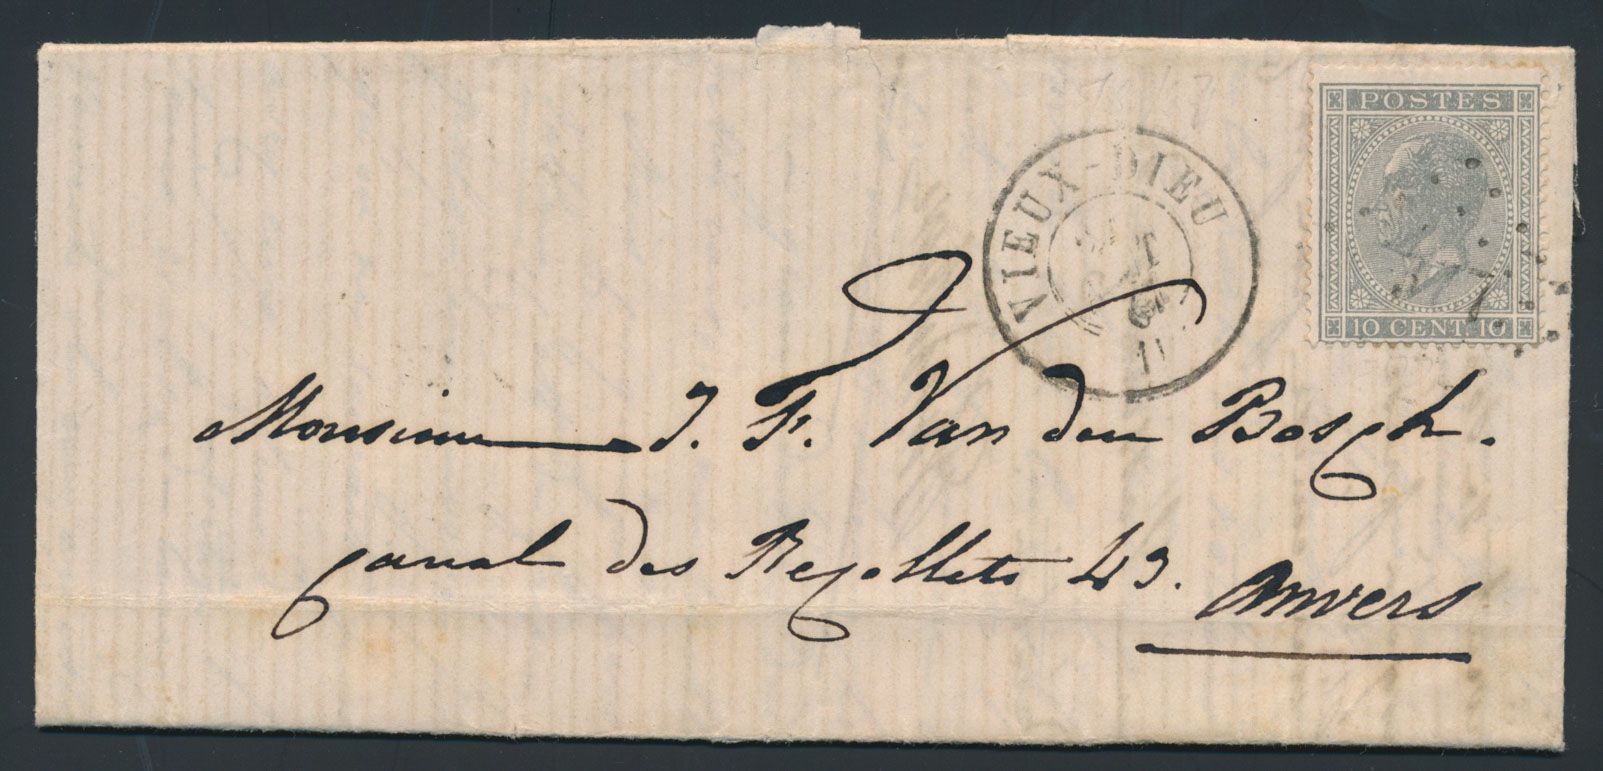 POSTES
10 CENT. 10
VIEUX-DIEU
11
Monsieur J. F. Van den Bosch.
Canal des Recollets 43.
Anvers